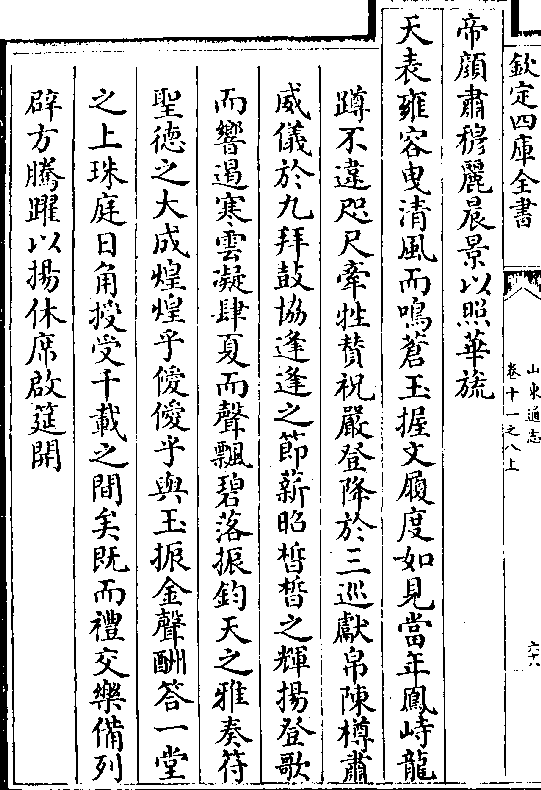 欽定四庫全書
山東通志
卷十一之八上
六十八
帝顔肅穆麗晨景以照華旒
天表雍容曳清風而鳴蒼玉握文履度如見當年鳳峙龍
蹲不違咫尺牽牲賛祝嚴登降於三巡獻帛陳樽肅
威儀於九拜鼓協逢逢之節薪昭晢晢之輝揚登歌
而響遏寒雲凝肆夏而聲飄碧落振鈞天之雅奏符
聖德之大成煌煌乎僾僾乎與玉振金聲酬答一堂
之上珠庭日角授受千載之間矣既而禮交樂備列
辟方騰躍以揚休席啟筵開